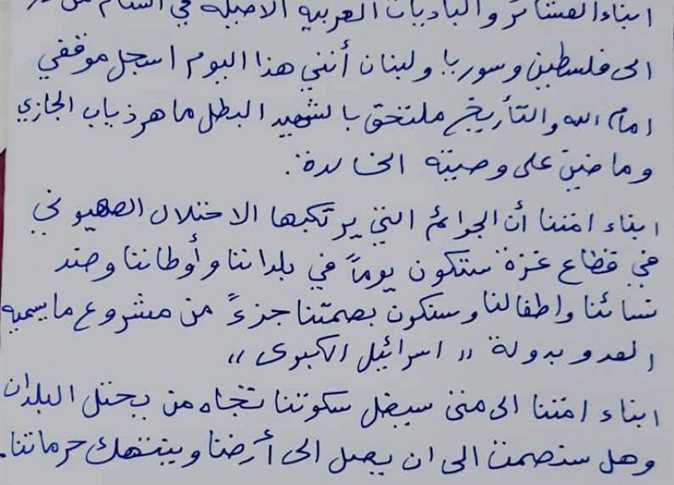 ابناء العشائر والباديات العربيه الاصيله في الشام من
الى فلسطين وسوريا ولبنان أنني هذا اليوم اسجل موقفي
امام الله والتأريخ ملتحق بالشهيد البطل ماهر ذياب الجازي
وماضين على وصيته الخالدة.
ابناء امتنا أن الجرائم التي يرتكبها الاحتلال الصهيوني
في قطاع غزة ستكون يوماً في بلداننا وأوطاننا وضد
نسائنا واطفالنا وسنكون بصمتنا جزءً من مشروع مايسميه
العدو بدولة " اسرائيل الكبرى "
ابناء امتنا الى متى سيضل سكوتنا تجاه من يحتل البلدان
وهل سنصمت الى ان يصل الى أرضنا وينتهك حرماتنا.